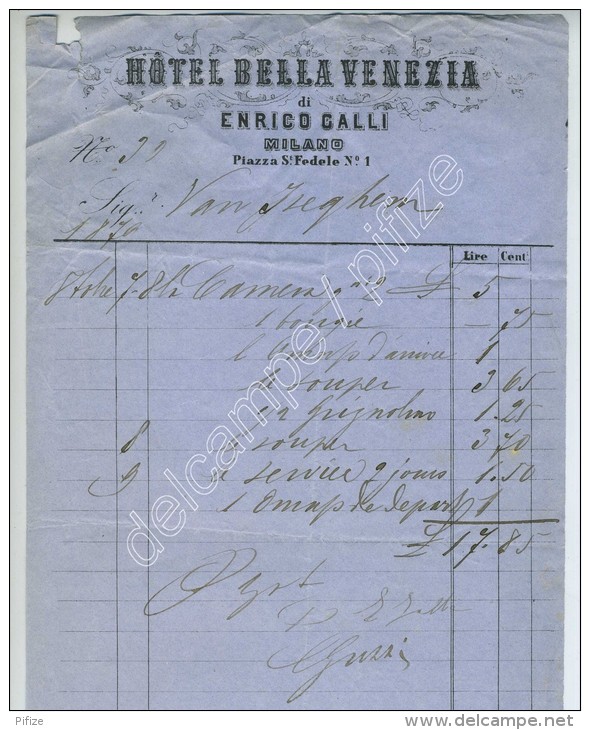 HÔTEL BELLA VENEZIA
di
ENRICO GALLI
MILANO
Piazza S.t Fedele N.o 1
No 39
Sig.r Van Iseghem
1870
Lire Cent
8bre 7-8 Camera 5
1 bougie – 75
1 d'arrivée 1
souper 3 65
Grignolino 1.25
8 souper 3 70
9 service 2 jours 1.50
1 Omnibs de depart 1
£ 17.85
delcampe / pifize
Pifize
www.delcampe.net